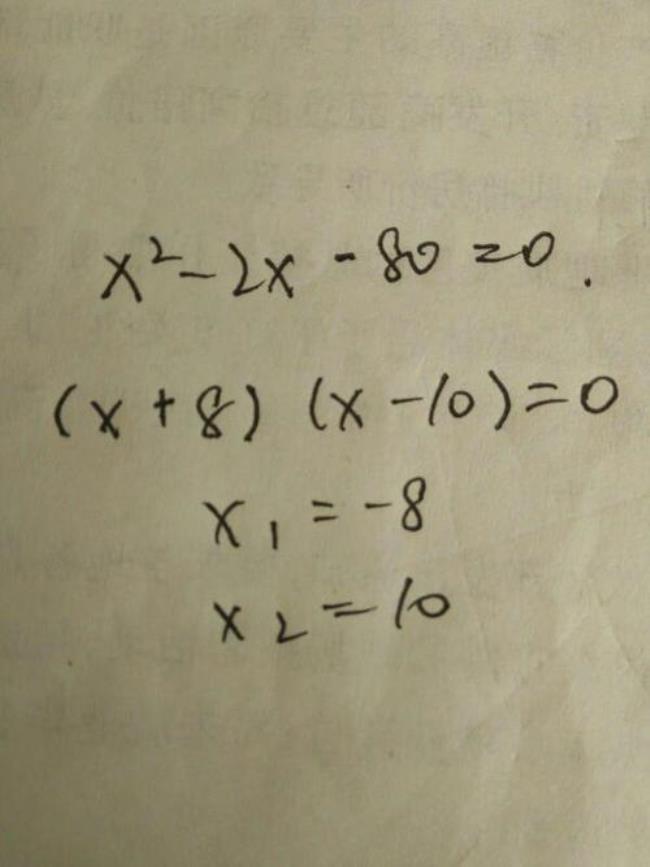 x²-2x-80=0.
(x+8)(x-10)=0
x₁=-8
x₂=10